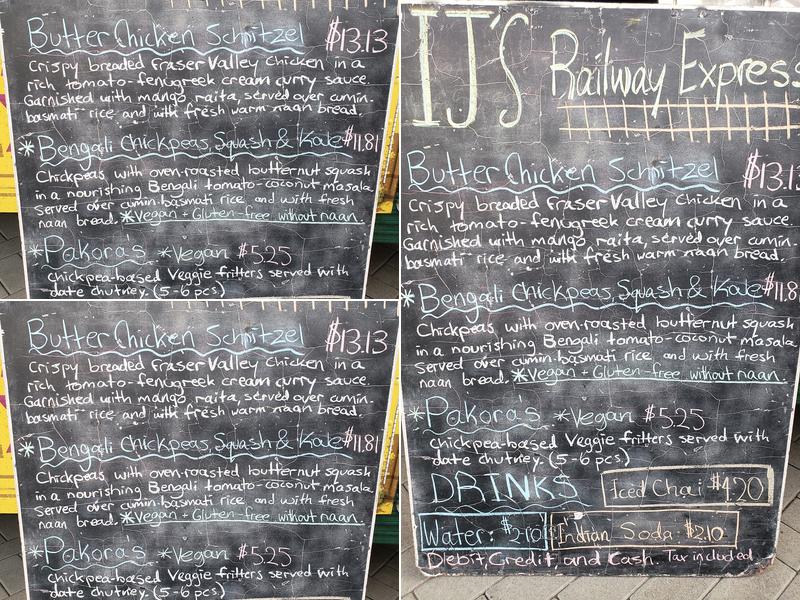 Butter Chicken Schnitzel $13.13
Crispy breaded Fraser Valley Chicken in a
rich tomato-fenugreek cream curry sauce.
Garnished with mango, raita, served over cumin-
basmati rice and with fresh warm naan bread.
*Bengali Chickpeas, Squash & Kale $11.81
Chickpeas with oven-roasted butternut squash
in a nourishing Bengali tomato-coconut masala
served over cumin-basmati rice and with fresh
naan bread. *Vegan + Gluten-free without naan.
*Pakora's *Vegan $5.25
chickpea-based Veggie fritters served with
date chutney. (5-6 pcs.)
Butter Chicken Schnitzel $13.13
Crispy breaded Fraser Valley Chicken in a
rich tomato-fenugreek cream curry sauce.
Garnished with mango, raita, served over cumin-
basmati rice and with fresh warm naan bread.
*Bengali Chickpeas, Squash & Kale $11.81
Chickpeas with oven-roasted butternut squash
in a nourishing Bengali tomato-coconut masala
served over cumin-basmati rice and with fresh
naan bread. *Vegan + Gluten-free without naan.
*Pakora's *Vegan $5.25
chickpea-based Veggie fritters served with
date chutney. (5-6 pcs.)
IJ's Railway Express
Butter Chicken Schnitzel $13.13
Crispy breaded Fraser Valley Chicken in a
rich tomato-fenugreek cream curry sauce.
Garnished with mango, raita, served over cumin-
basmati rice and with fresh warm naan bread.
*Bengali Chickpeas, Squash & Kale $11.8
Chickpeas with oven-roasted butternut squash
in a nourishing Bengali tomato-coconut masala
served over cumin-basmati rice and with fresh
naan bread. *Vegan + Gluten-free without naan.
*Pakora's *Vegan $5.25
chickpea-based Veggie fritters served with
date chutney. (5-6 pcs.)
DRINKS Iced Chai $4.20
Water: $2.10 Indian Soda: $2.10
Debit, Credit, and Cash. Tax included